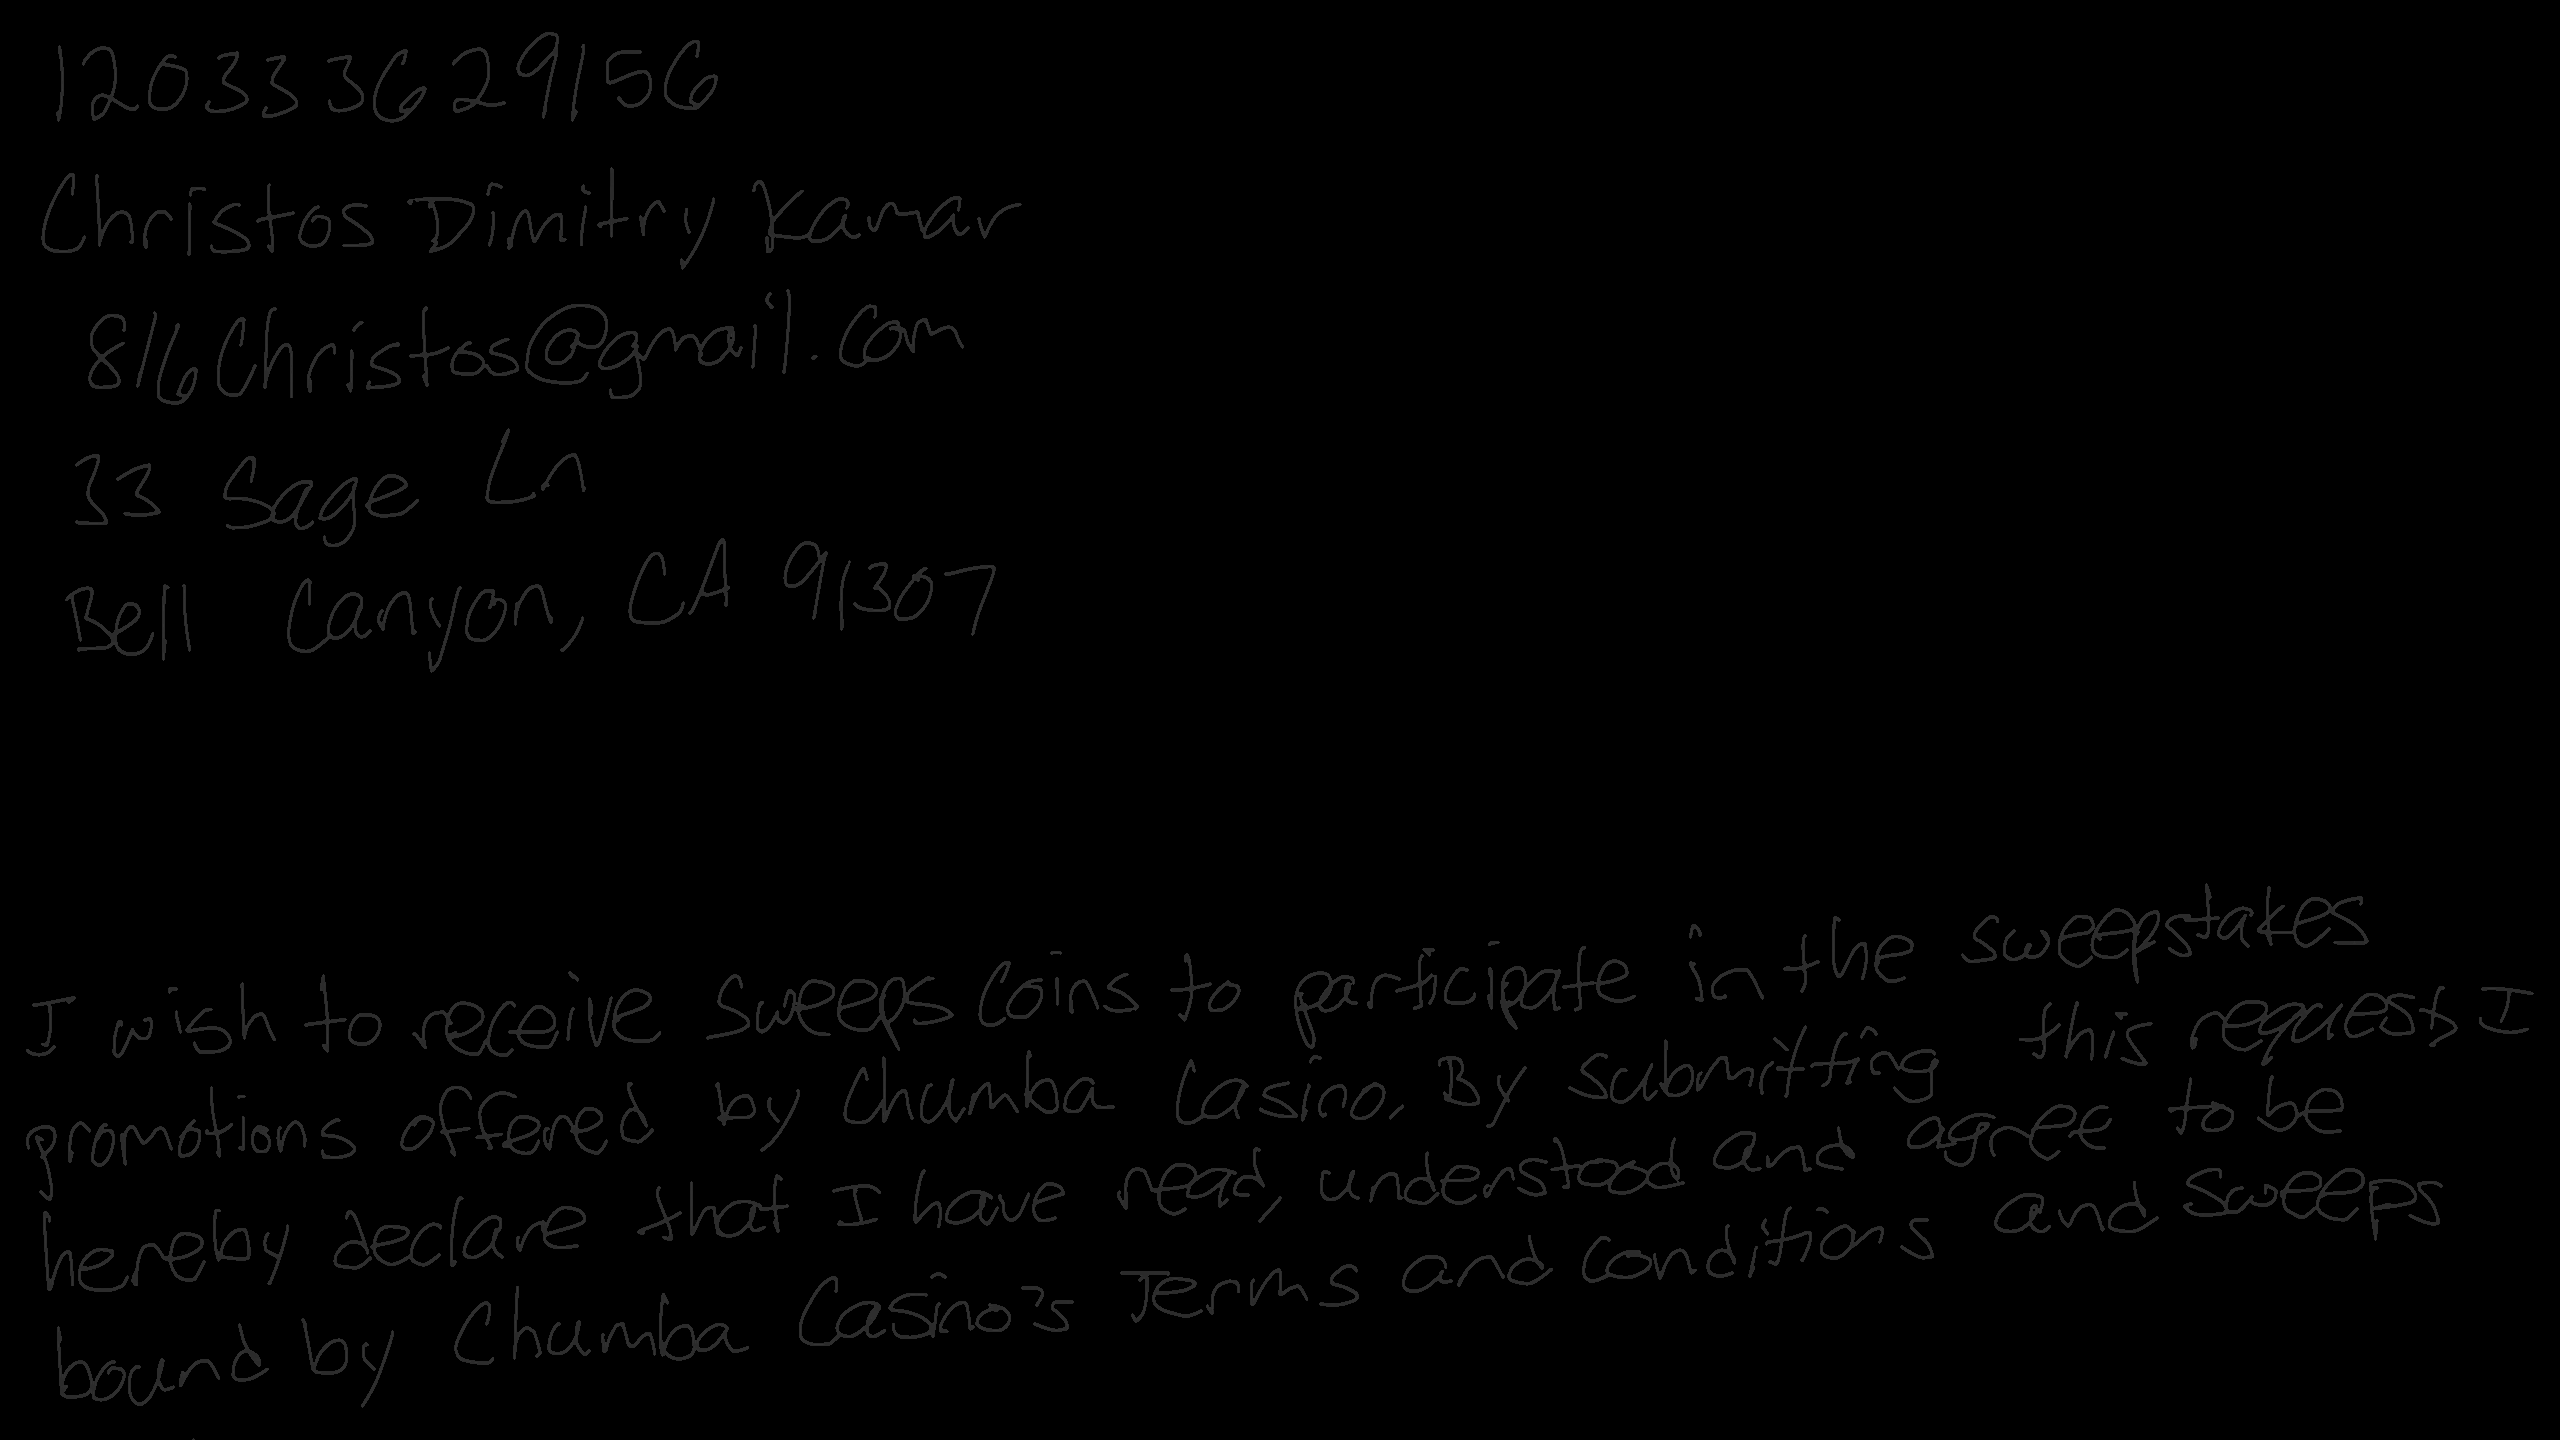 120333629156
Christos Dimitry Kamar
816Christos@gmail.com
33 Sage Ln
Bell Canyon, CA 91307
I wish to receive Sweeps Coins to participate in the sweepstakes
promotions offered by Chumba Casino. By submitting this request, I
hereby declare that I have read, understood and agree to be
bound by Chumba Casino's Terms and conditions and Sweeps